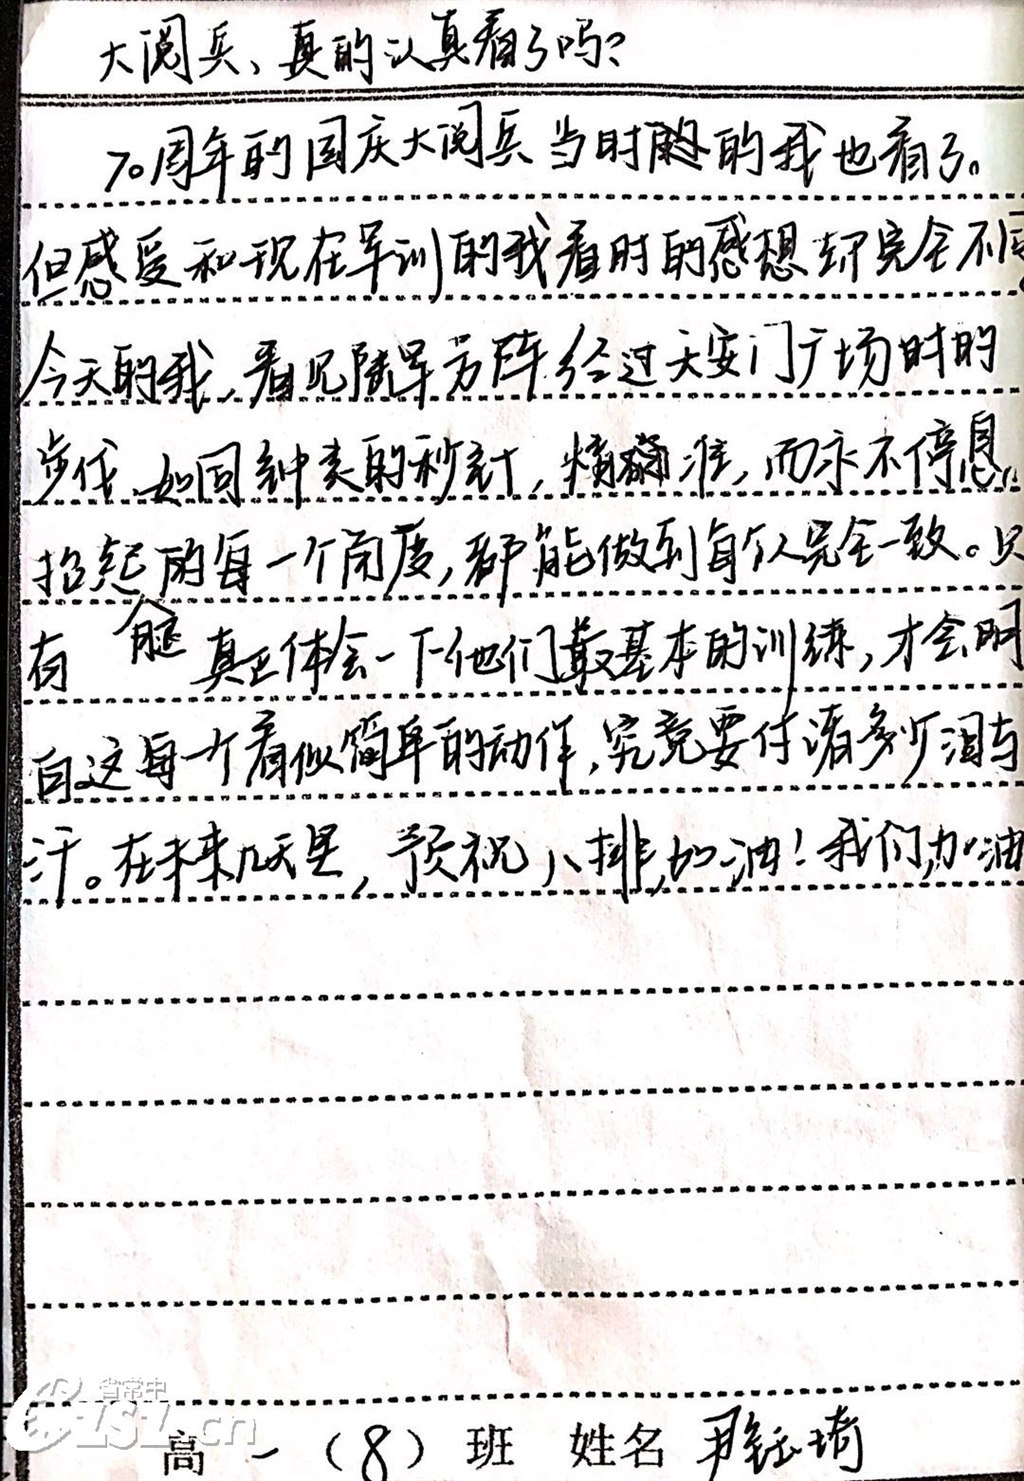 大阅兵、真的认真看了吗?
70周年的国庆大阅兵当时的我也看了。
但感受和现在军训的我看时的感想却完全不同
今天的我,看见陆军方阵经过天安门广场时的
步伐,如同钟表的秒针,精准,而永不停息。
抬起的每一个角度,都能做到每个人完全一致。只
有 真正体会一下他们最基本的训练,才会明
白这每一个看似简单的动作,究竟要付诸多少泪与
汗。在未来几天里,预祝八排,加油!我们,加油
省常中
CSLZ.cn
高一(8)班 姓名 尹钰琦